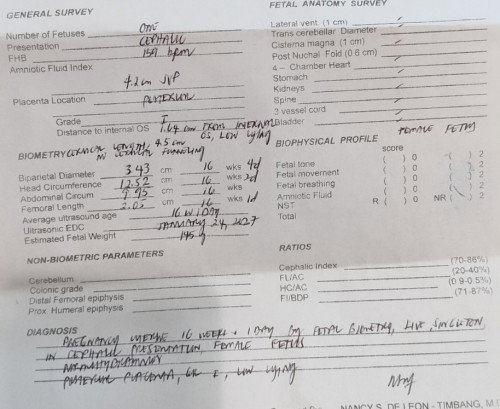 GENERAL SURVEY
Number of Fetuses ONE
Presentation CEPHALIC
FHB 159 bpm
Amniotic Fluid Index
4.2 cm SVP
Placenta Location POSTERIOR
Grade I
Distance to internal OS 1.64 cm FROM INTERNAL OS, LOW LYING
BIOMETRY CERVICAL LENGTH, 4.5 cm
W/ CERVICAL FUNNELING
Biparietal Diameter 3.43 cm 16 wks 4d
Head Circumference 12.52 cm 16 wks 2d
Abdominal Circum 9.95 cm 16 wks
Femoral Length 2.03 cm 16 wks 1d
Average ultrasound age 16 W 1 DAY
Ultrasonic EDC JANUARY 24, 2027
Estimated Fetal Weight 145 g
NON-BIOMETRIC PARAMETERS
Cerebellum
Colonic grade
Distal Femoral epiphysis
Prox. Humeral epiphysis
FETAL ANATOMY SURVEY
Lateral vent (1 cm)
Trans cerebellar Diameter
Cisterna magna (1 cm)
Post Nuchal Fold (0.6 cm)
4 - Chamber Heart
Stomach
Kidneys
Spine
3 vessel cord
Bladder
FEMALE FETUS
BIOPHYSICAL PROFILE
score
Fetal tone ( ) 0 ( ) 2
Fetal movement ( ) 0 ( ) 2
Fetal breathing ( ) 0 ( ) 2
Amniotic Fluid ( ) 0 ( ) 2
NST R ( ) 0 NR ( ) 2
Total
RATIOS
Cephalic Index (70-86%)
FL/AC (20-40%)
HC/AC (0.9-0.5%)
Fl/BDP (71-87%)
DIAGNOSIS
PREGNANCY UTERINE 16 WEEKS + 1 DAY BY FETAL BIOMETRY, LIVE, SINGLETON,
IN CEPHALIC PRESENTATION, FEMALE FETUS
NORMOHYDRAMNIOS
POSTERIOR PLACENTA, GR I, LOW LYING
NANCY S. DE LEON - TIMBANG, M